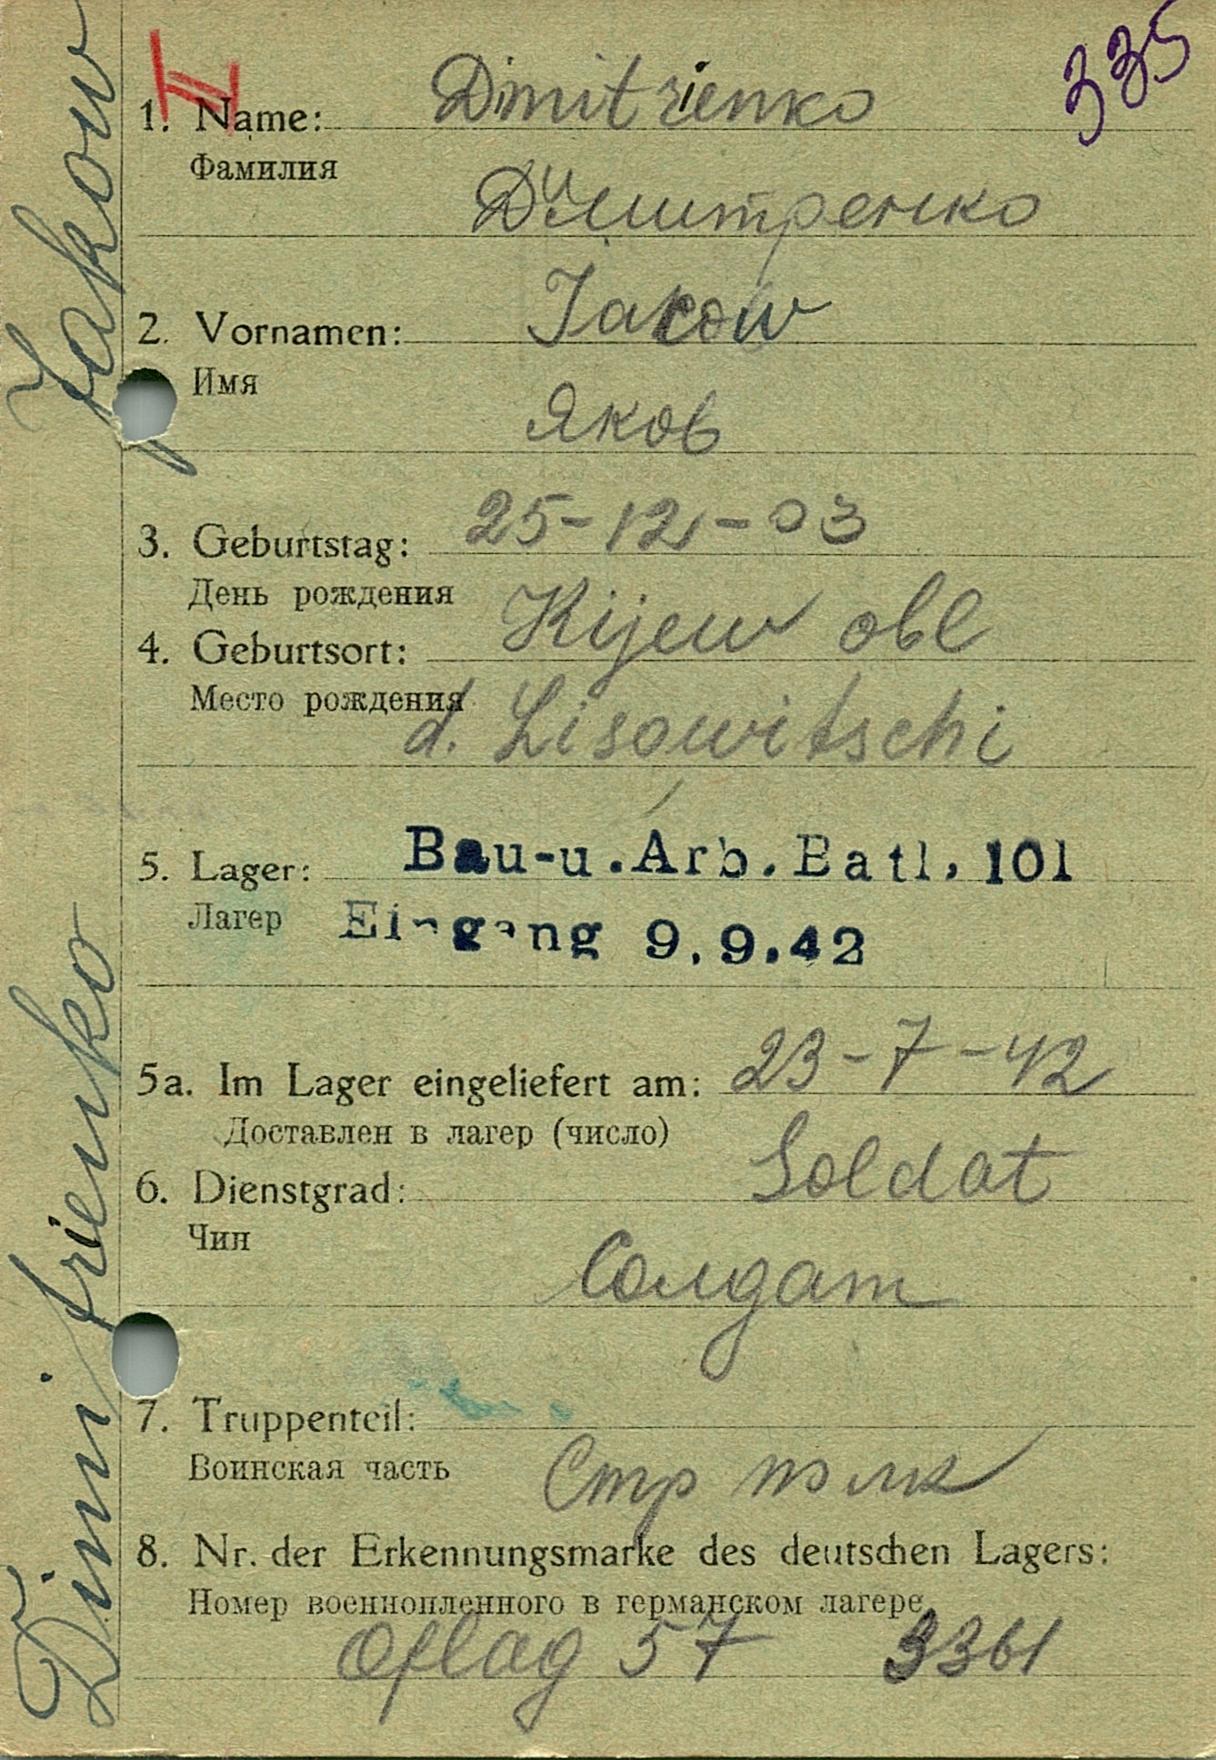 335
IV
1. Name: Dmitrienko
Фамилия
Димитренко
2. Vornamen: Jakow
Имя
Яков
3. Geburtstag: 25-12-03
День рождения
4. Geburtsort: Kijew obl
Место рождения
d. Lisowitschi
5. Lager: Bau-u.Arb.Batl, 101
Лагер Eingang 9.9.42
5a. Im Lager eingeliefert am: 23-7-42
Доставлен в лагер (число)
6. Dienstgrad: Soldat
Чин
Солдат
7. Truppenteil:
Воинская часть Стр полк
8. Nr. der Erkennungsmarke des deutschen Lagers:
Номер военнопленного в германском лагере
Oflag 57 3361
Dimitrienko Jakow